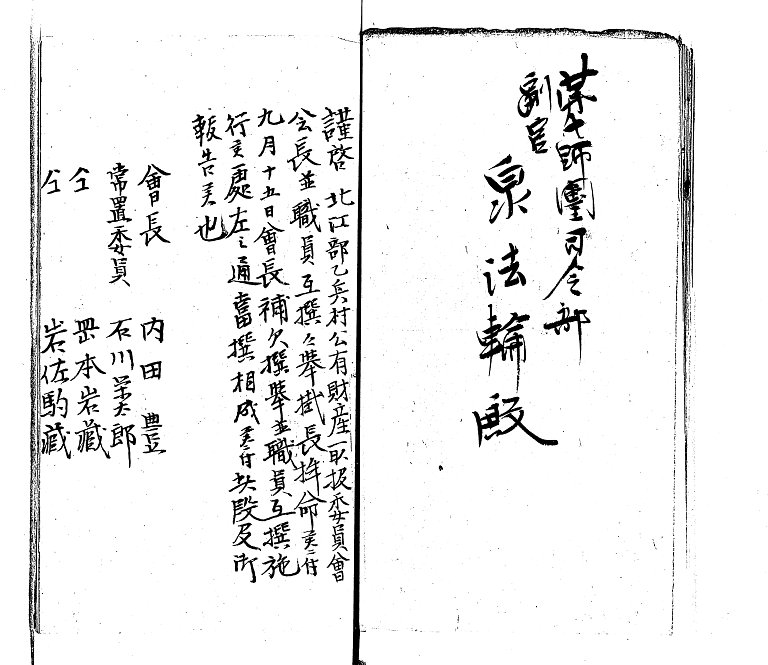 第七師團司令部
副官
泉法輪殿
謹啓 北江部乙兵村公有財産取扱委員會
会長並職員互撰々舉掛長拝命候ニ付
九月十五日會長補欠撰舉並職員互撰施
行候處左之通當撰相成候ニ付此段及御
報告候也
會長 内田豊
常置委員 石川榮太郎
仝 岡本岩藏
仝 岩佐駒藏